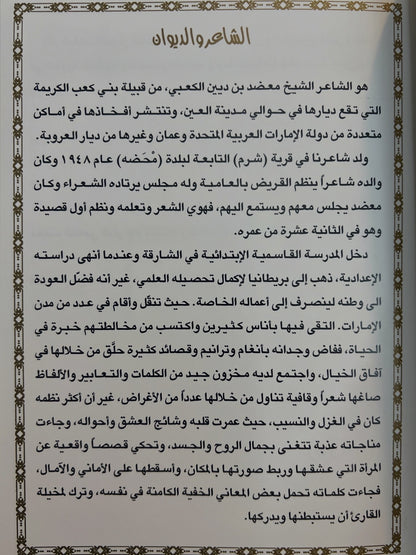 الشاعر والديوان
هو الشاعر الشيخ معضد بن ديين الكعبي، من قبيلة بني كعب الكريمة
التي تقع ديارها في حوالي مدينة العين، وتنتشر أفخاذها في أماكن
متعددة من دولة الإمارات العربية المتحدة وعمان وغيرها من ديار العروبة.
ولد شاعرنا في قرية (شرم) التابعة لبلدة (مُحَضه) عام ١٩٤٨ وكان
والده شاعراً ينظم القريض بالعامية وله مجلس يرتاده الشعراء وكان
معضد يجلس معهم ويستمع اليهم، فهوي الشعر وتعلمه ونظم أول قصيدة
وهو في الثانية عشرة من عمره.
دخل المدرسة القاسمية الإبتدائية في الشارقة وعندما أنهى دراسته
الإعدادية، ذهب إلى بريطانيا لإكمال تحصيله العلمي، غير أنه فضّل العودة
الى وطنه لينصرف إلى أعماله الخاصة. حيث تنقّل وأقام في عدد من مدن
الإمارات. التقى فيها بأناس كثيرين واكتسب من مخالطتهم خبرة في
الحياة، ففاض وجدانه بأنغام وترانيم وقصائد كثيرة حلَّق من خلالها في
آفاق الخيال، واجتمع لديه مخزون جيد من الكلمات والتعابير والألفاظ
صاغها شعراً وقافية تناول من خلالها عدداً من الأغراض، غير أن أكثر نظمه
كان في الغزل والنسيب، حيث عمرت قلبه وشائج العشق وأحواله، وجاءت
مناجاته عذبة تتغنى بجمال الروح والجسد، وتحكي قصصاً واقعية عن
المرأة التي عشقها وربط صورتها بالمكان، وأسقطها على الأماني والآمال،
فجاءت كلماته تحمل بعض المعاني الخفية الكامنة في نفسه، وترك لمخيلة
القارئ أن يستبطنها ويدركها.